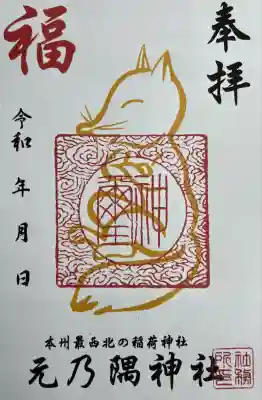 奉拝
福
令和 年 月 日
本州最西北の稲荷神社
元乃隅神社
社務所之印